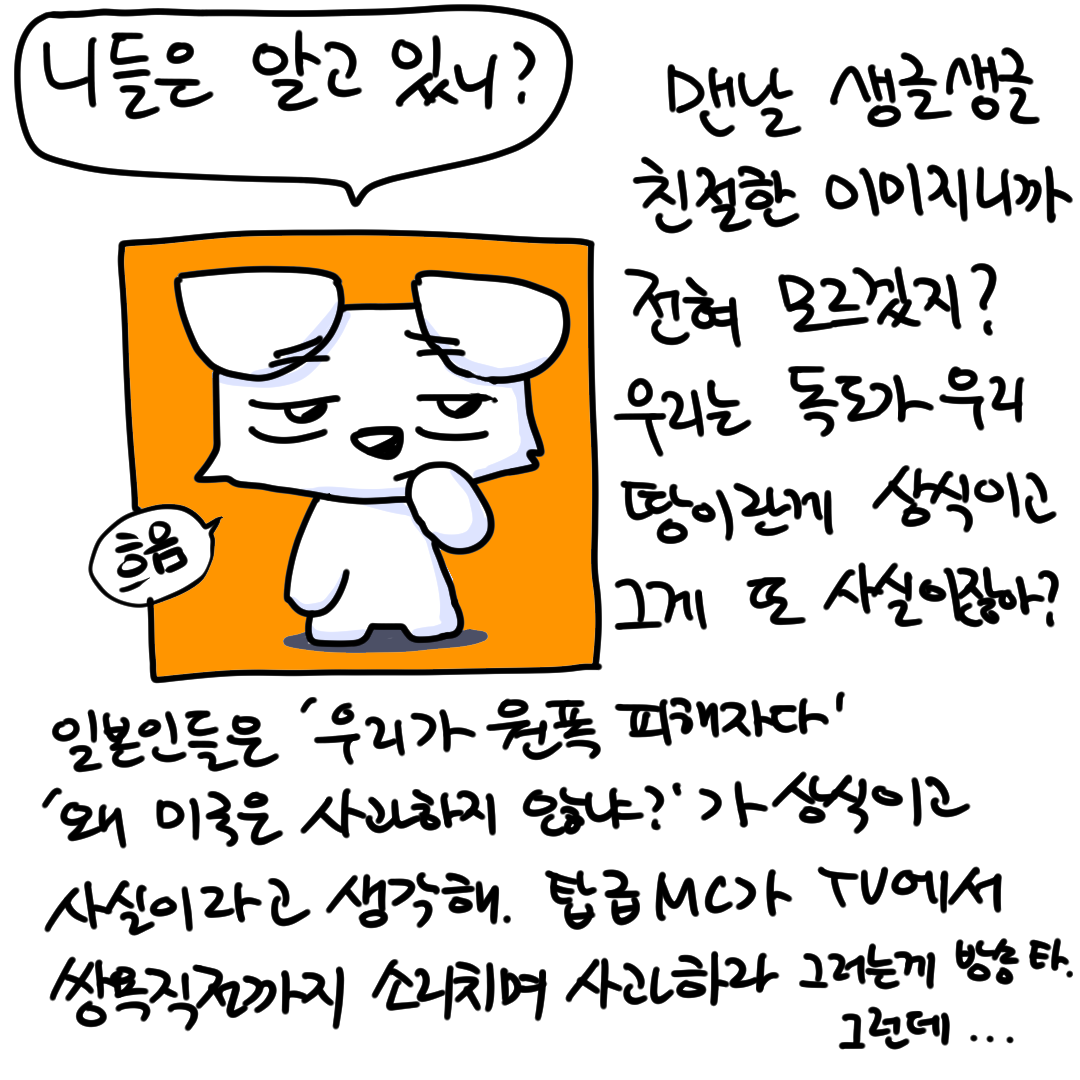 니들은 알고 있니?
맨날 생글생글
친절한 이미지니까
전혀 모르겠지?
우리는 독도가 우리
땅이란게 상식이고
그게 또 사실이잖아?
흐음
일본인들은 '우리가 원폭 피해자다'
'왜 미국은 사과하지 않냐?'가 상식이고
사실이라고 생각해. 탑급 MC가 TV에서
쌍욕직전까지 소리치며 사과하라 그러는게 방송 타.
그런데 ...